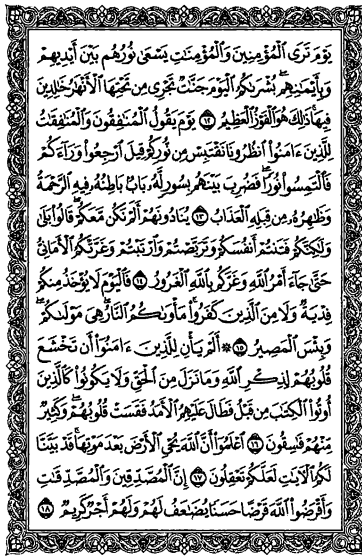 يَوْمَ تَرَى ٱلْمُؤْمِنِينَ وَٱلْمُؤْمِنَٰتِ يَسْعَىٰ نُورُهُم بَيْنَ أَيْدِيهِمْ
وَبِأَيْمَٰنِهِم بُشْرَىٰكُمُ ٱلْيَوْمَ جَنَّٰتٌ تَجْرِى مِن تَحْتِهَا ٱلْأَنْهَٰرُ خَٰلِدِينَ
فِيهَا ۚ ذَٰلِكَ هُوَ ٱلْفَوْزُ ٱلْعَظِيمُ ١٢ يَوْمَ يَقُولُ ٱلْمُنَٰفِقُونَ وَٱلْمُنَٰفِقَٰتُ
لِلَّذِينَ ءَامَنُوا۟ ٱنظُرُونَا نَقْتَبِسْ مِن نُّورِكُمْ قِيلَ ٱرْجِعُوا۟ وَرَآءَكُمْ
فَٱلْتَمِسُوا۟ نُورًا فَضُرِبَ بَيْنَهُم بِسُورٍ لَّهُۥ بَابٌۢ بَاطِنُهُۥ فِيهِ ٱلرَّحْمَةُ
وَظَٰهِرُهُۥ مِن قِبَلِهِ ٱلْعَذَابُ ١٣ يُنَادُونَهُمْ أَلَمْ نَكُن مَّعَكُمْ ۖ قَالُوا۟ بَلَىٰ
وَلَٰكِنَّكُمْ فَتَنتُمْ أَنفُسَكُمْ وَتَرَبَّصْتُمْ وَٱرْتَبْتُمْ وَغَرَّتْكُمُ ٱلْأَمَانِىُّ
حَتَّىٰ جَآءَ أَمْرُ ٱللَّهِ وَغَرَّكُم بِٱللَّهِ ٱلْغَرُورُ ١٤ فَٱلْيَوْمَ لَا يُؤْخَذُ مِنكُمْ
فِدْيَةٌ وَلَا مِنَ ٱلَّذِينَ كَفَرُوا۟ ۚ مَأْوَىٰكُمُ ٱلنَّارُ ۖ هِىَ مَوْلَىٰكُمْ ۖ
وَبِئْسَ ٱلْمَصِيرُ ١٥ ۞ أَلَمْ يَأْنِ لِلَّذِينَ ءَامَنُوٓا۟ أَن تَخْشَعَ
قُلُوبُهُمْ لِذِكْرِ ٱللَّهِ وَمَا نَزَلَ مِنَ ٱلْحَقِّ وَلَا يَكُونُوا۟ كَٱلَّذِينَ
أُوتُوا۟ ٱلْكِتَٰبَ مِن قَبْلُ فَطَالَ عَلَيْهِمُ ٱلْأَمَدُ فَقَسَتْ قُلُوبُهُمْ ۖ وَكَثِيرٌ
مِّنْهُمْ فَٰسِقُونَ ١٦ ٱعْلَمُوٓا۟ أَنَّ ٱللَّهَ يُحْىِ ٱلْأَرْضَ بَعْدَ مَوْتِهَا ۚ قَدْ بَيَّنَّا
لَكُمُ ٱلْـَٔايَٰتِ لَعَلَّكُمْ تَعْقِلُونَ ١٧ إِنَّ ٱلْمُصَّدِّقِينَ وَٱلْمُصَّدِّقَٰتِ
وَأَقْرَضُوا۟ ٱللَّهَ قَرْضًا حَسَنًا يُضَٰعَفُ لَهُمْ وَلَهُمْ أَجْرٌ كَرِيمٌ ١٨